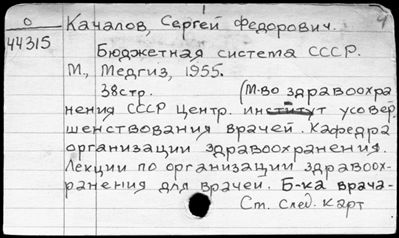 О
44315
Качалов, Сергей Федорович.
4
Бюджетная система СССР.
М., Медгиз, 1955.
38стр. (М-во здравоохра
нения СССР Центр. институт усовер
шенствования врачей. Кафедра
организации здравоохранения.
Лекции по организации здравоох-
ранения для врачей. Б-ка врача-
Ст. след. карт